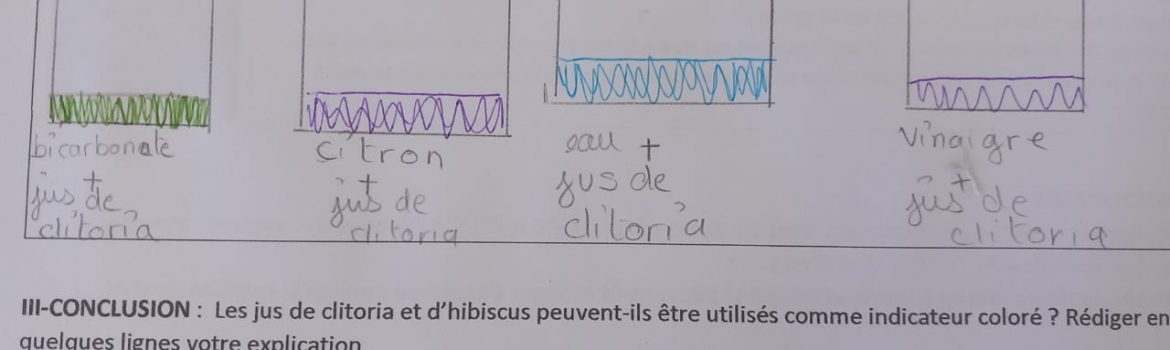 bicarbonate
+
jus de
clitoria
citron
+
jus de
clitoria
eau +
jus de
clitoria
Vinaigre
+
jus de
clitoria
III-CONCLUSION : Les jus de clitoria et d'hibiscus peuvent-ils être utilisés comme indicateur coloré ? Rédiger en
quelques lignes votre explication